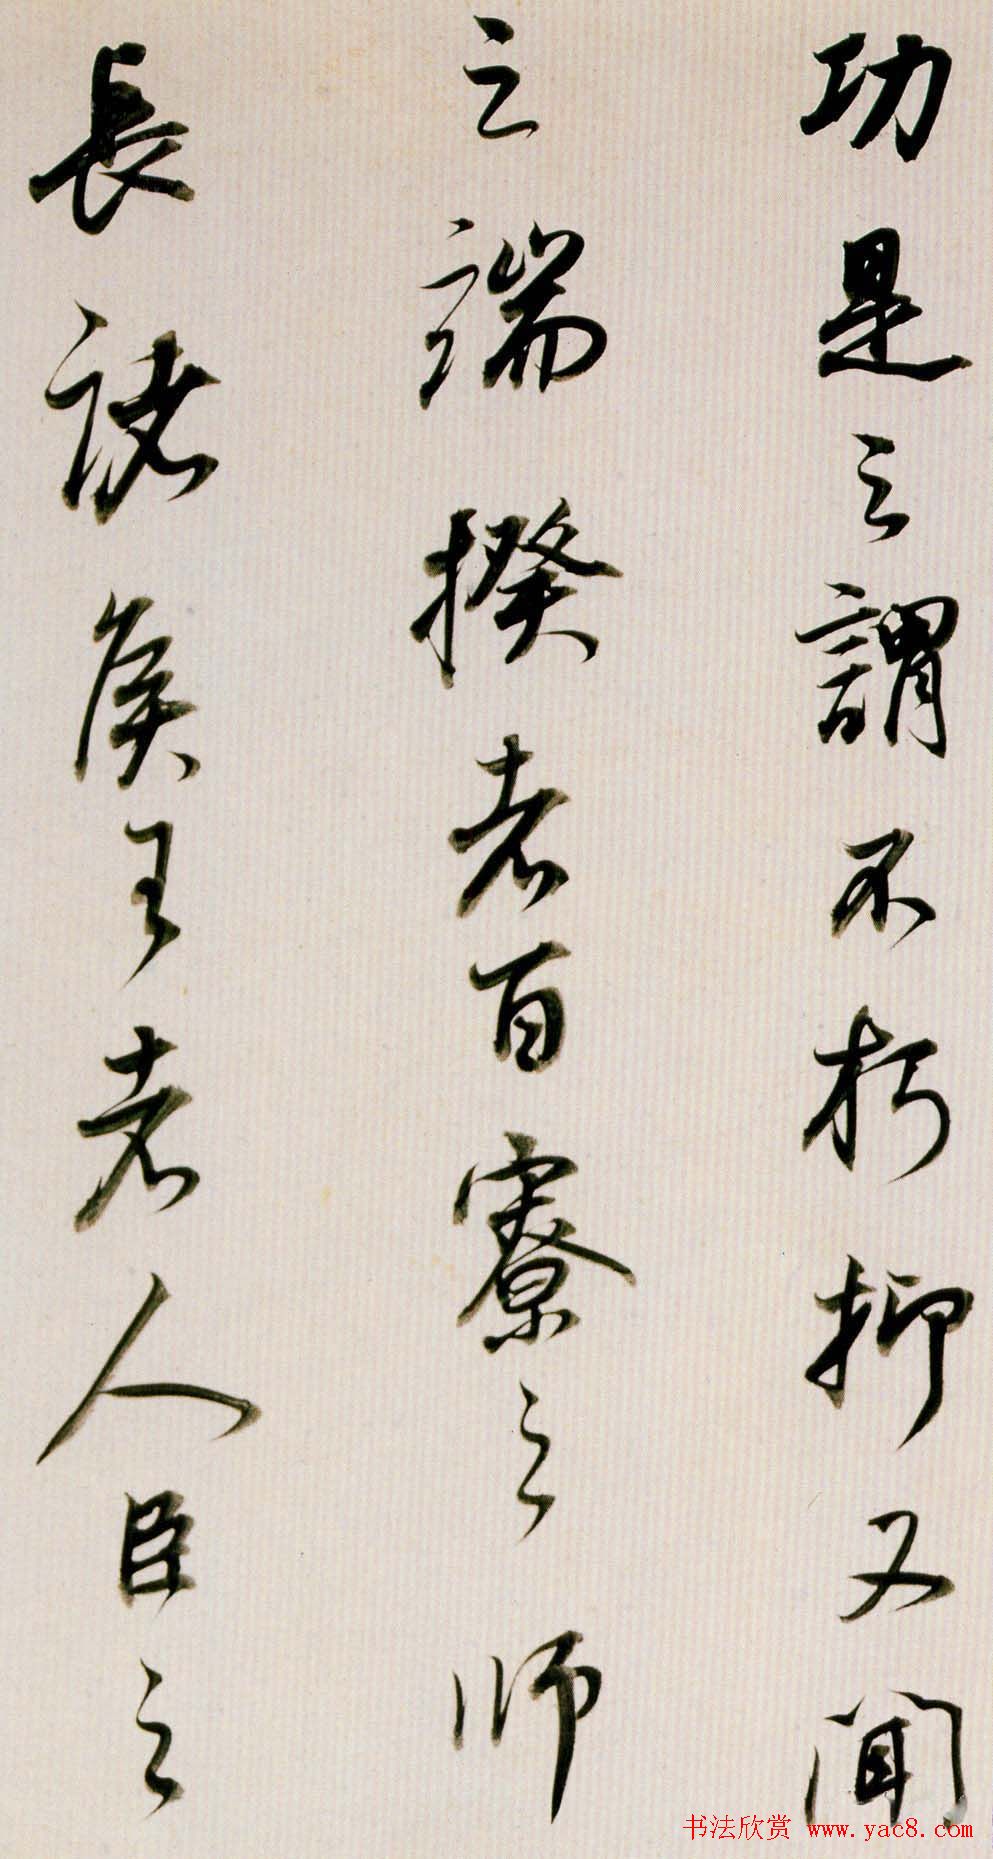 功是之謂不朽抑又聞
之端揆者百寮之師
長諸侯王者人臣之
书法欣赏 www.yac8.com